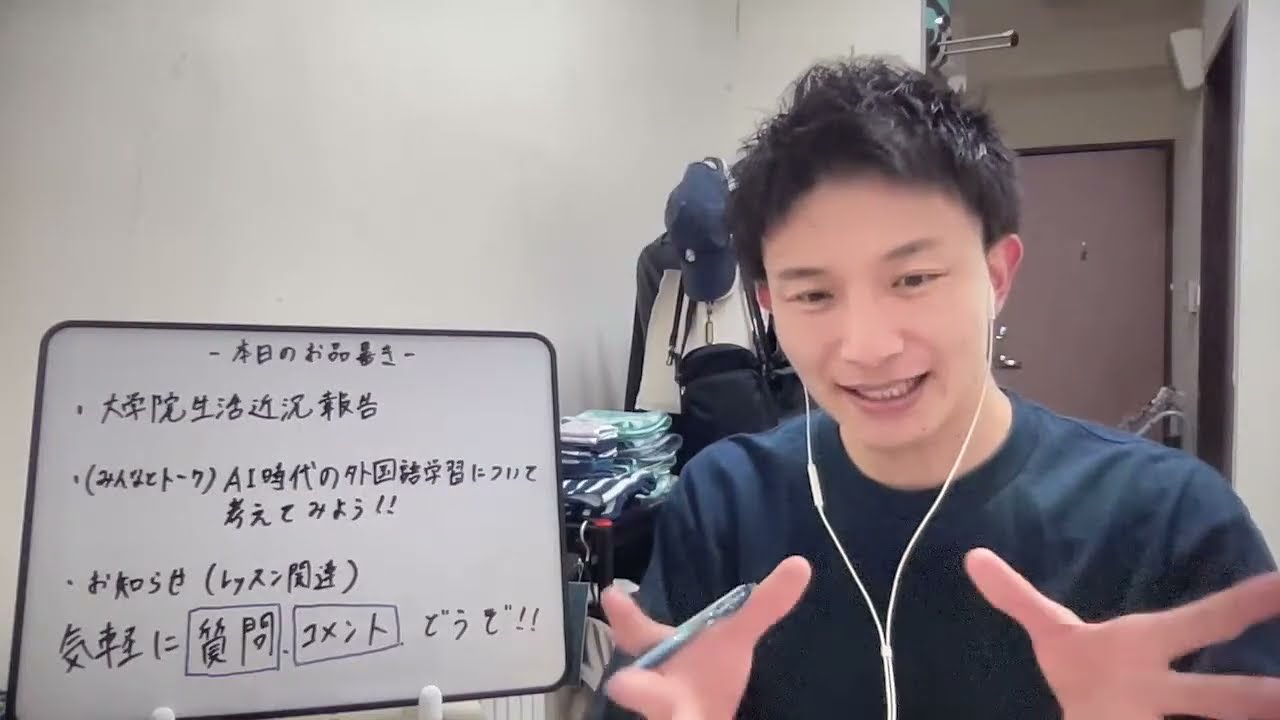 - 本日のお品書き -
・大学院生活近況報告
・(みんなとトーク) AI時代の外国語学習について
考えてみよう!!
・お知らせ (レッスン関連)
気軽に 質問、コメント、どうぞ!!